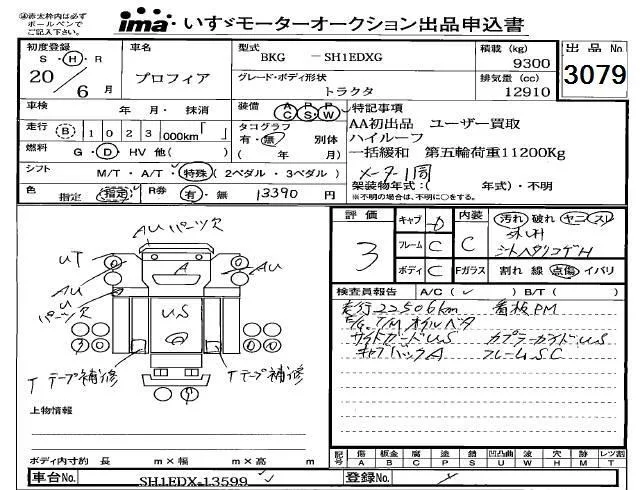 ㊟赤太枠内は必ず
ボールペンで
ご記入下さい。
ima いすゞモーターオークション出品申込書
初度登録
S・H・R
20年 6月
車名
プロフィア
型式
BKG －SH1EDXG
グレード・ボディ形状
トラクタ
積載 (kg)
9300
排気量 (cc)
12910
出品 No
3079
車検 年 月・ 抹消
走行 (B) 1023 000km「 」
燃料 G・D・HV 他( )
装備 AC PS PW
タコグラフ
有・無 別体
( 年 月)
特記事項
AA初出品 ユーザー買取
ハイルーフ
一括緩和 第五輪荷重11200Kg
メーター1同
シフト M/T・A/T・特殊(2ペダル・3ペダル)
色 指定 (指定) R券 有・無 13390 円
架装物年式:( 年式)・不明
※不明の場合は、不明に○をする。
AUパーツ欠
UT
AU
AU
U
パーツ欠
A
US
T テープ補修
T テープ補修
上物情報
ボディ内寸約 長 m×幅 m×高 m
評価
3
キャブ D
フレーム C
ボディ C
内装
C
Fガラス
汚れ 破れ ヤニ スリ
割れ 線 点傷 イバリ
検査員報告 A/C( ✓ ) B/T( )
走行22506km 看板PM
E/G. T/M オイルベタ
サイドガードUS カプラーガイドUS
キャブバックA フレームSC
記号
傷 A
板金 B
腐 C
塗 P
錆 S
凹凸曲 U
波 W
穴 H
跡 M
レツ割 T
車台No. SH1EDX-13599
登録No.